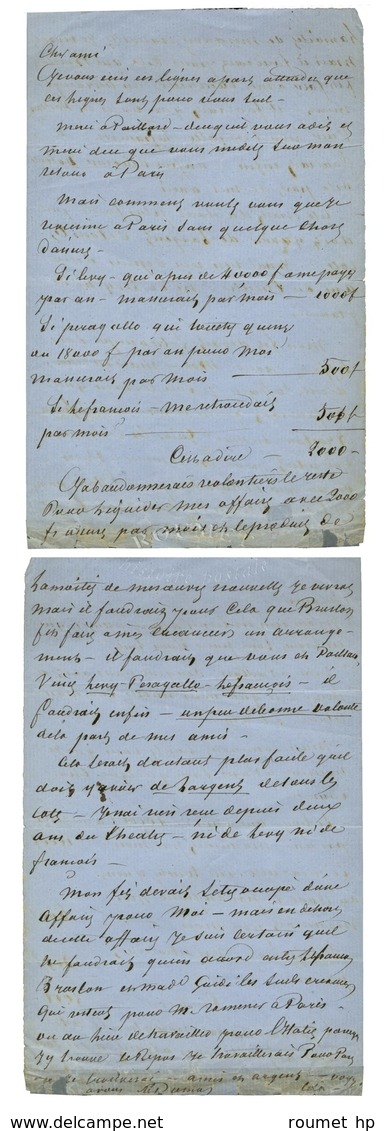 Cher ami
Je vous écris ces lignes à part attendu que
ces lignes sont pour vous seul –
merci à Paillard –
retour à Paris
Mais comment voulez vous que je
revienne à Paris sans quelque chose
d'assuré –
Si Levy – qui a près de 40000 f à me payer
par an – m'assurait par mois – 1000 f
Si peragallo qui touche
ou 18000 f par an pour moi
m'assurait par mois — 500 f
Si lefrancois – me
par mois — 500 f
C'est à dire – 2000 –
J'abandonnerais volontiers le reste
pour liquider mes affaires avec 2000
fs assurés par mois et le produit de
la moitié de mes œuvres nouvelles je verrai
mais il faudrait pour cela que
fit faire à mes créanciers un arrange-
ment – il faudrait que vous et Paillard
Vissiez levy Peragallo lefrançois – il
faudrait enfin – un peu de bonne volonté
de la part de mes amis –
Cela serait d'autant plus facile qu'il
doit y avoir de l'argent de tous les
cotés – Je n'ai rien reçu depuis deux
ans du théâtre – ni de levy ni de
francois –
Mon fils devait s'être occupé d'une
affaire pour moi – mais en dehors
de cette affaire je suis certain qu'il
le faudrait qu'un accord entre lefrancois
et Mad Guidi les seuls créanciers
qui restent pour me ramener à Paris –
ou au lieu de travailler pour l'Italie
j'y trouve le repos je travaillerais pour Paris
amis et argent – voyez
cela
© roumet hp